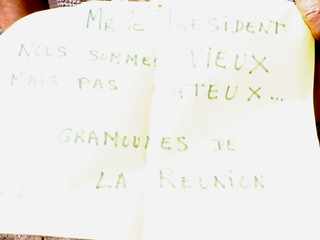 MR LE PRESIDENT
NOUS SOMMES VIEUX
MAIS PAS TEUX...
GRAMOUNES DE
LA REUNION